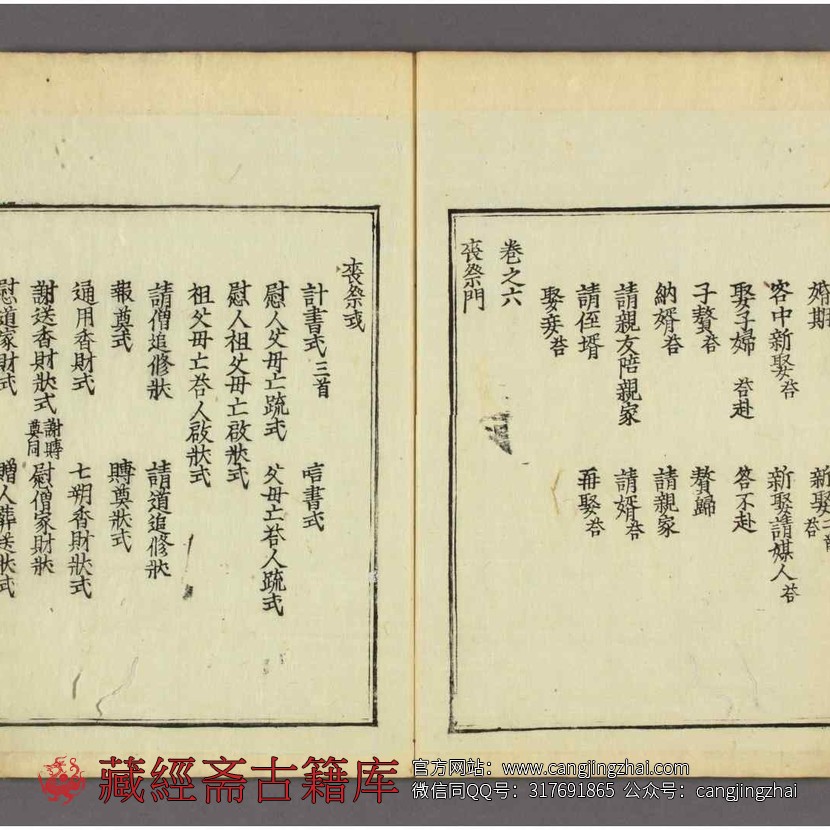 婚期
新娶
答
客中新娶答
新娶請媒人答
娶子婦 答赴
答不赴
子贅答
贅歸
納婿答
請親家
請親友陪親家
請婿答
請侄壻
再娶答
娶妾答
卷之六
丧祭門
丧祭式
訃書式三首
唁書式
慰人父母亡疏式
父母亡答人疏式
慰人祖父母亡啟狀式
祖父母亡答人啟狀式
請僧追修狀
請道追修狀
報奠式
賻奠狀式
通用香財式
七朔香財狀式
謝送香財狀式 謝賻奠同
慰僧家財狀
慰道家財式
贈人葬送狀式
藏經斋古籍库
官方网站：www.cangjingzhai.com
微信同QQ号：317691865 公众号：cangjingzhai